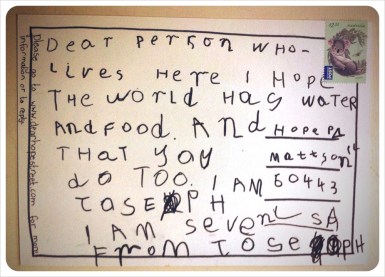 Dear Person WHO-
Lives Here I Hope
The World Has Water
And Food. And
That You
do Too. I am
I am seven
From Joseph
Hope
Mattson
60443
Please go to www.dearhopestreet.com for more
information or to reply.